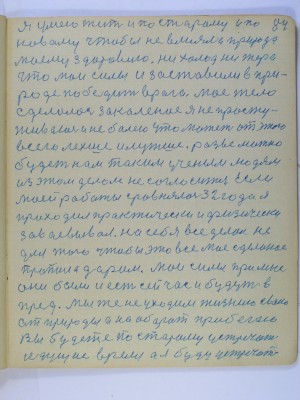 Я умею жить и по старому и по
новому чтобы не влияла природа
моему здоровию. ни холод ни жара
что мои силы и заставили в при-
роде победить врага. мое тело
сделалось закаленое я не просту-
живаюсь и не болею что может от этого
всего легше и лутше. разве можно
будет нам таким ученым людям
из этом делом не согласится. Если
моей работы сровнялось 32 года я
приходил практически и физически
завоевывал. на себя все делал не
для того чтобы это все мое сделаное
пропало даром. мои силы прямые
они были и есть сейчас и будут в
пред. Мы же не уходим жизнию своею
от природы а на оборот
Вы будете по старому встречать
идущие время а я буду встречать